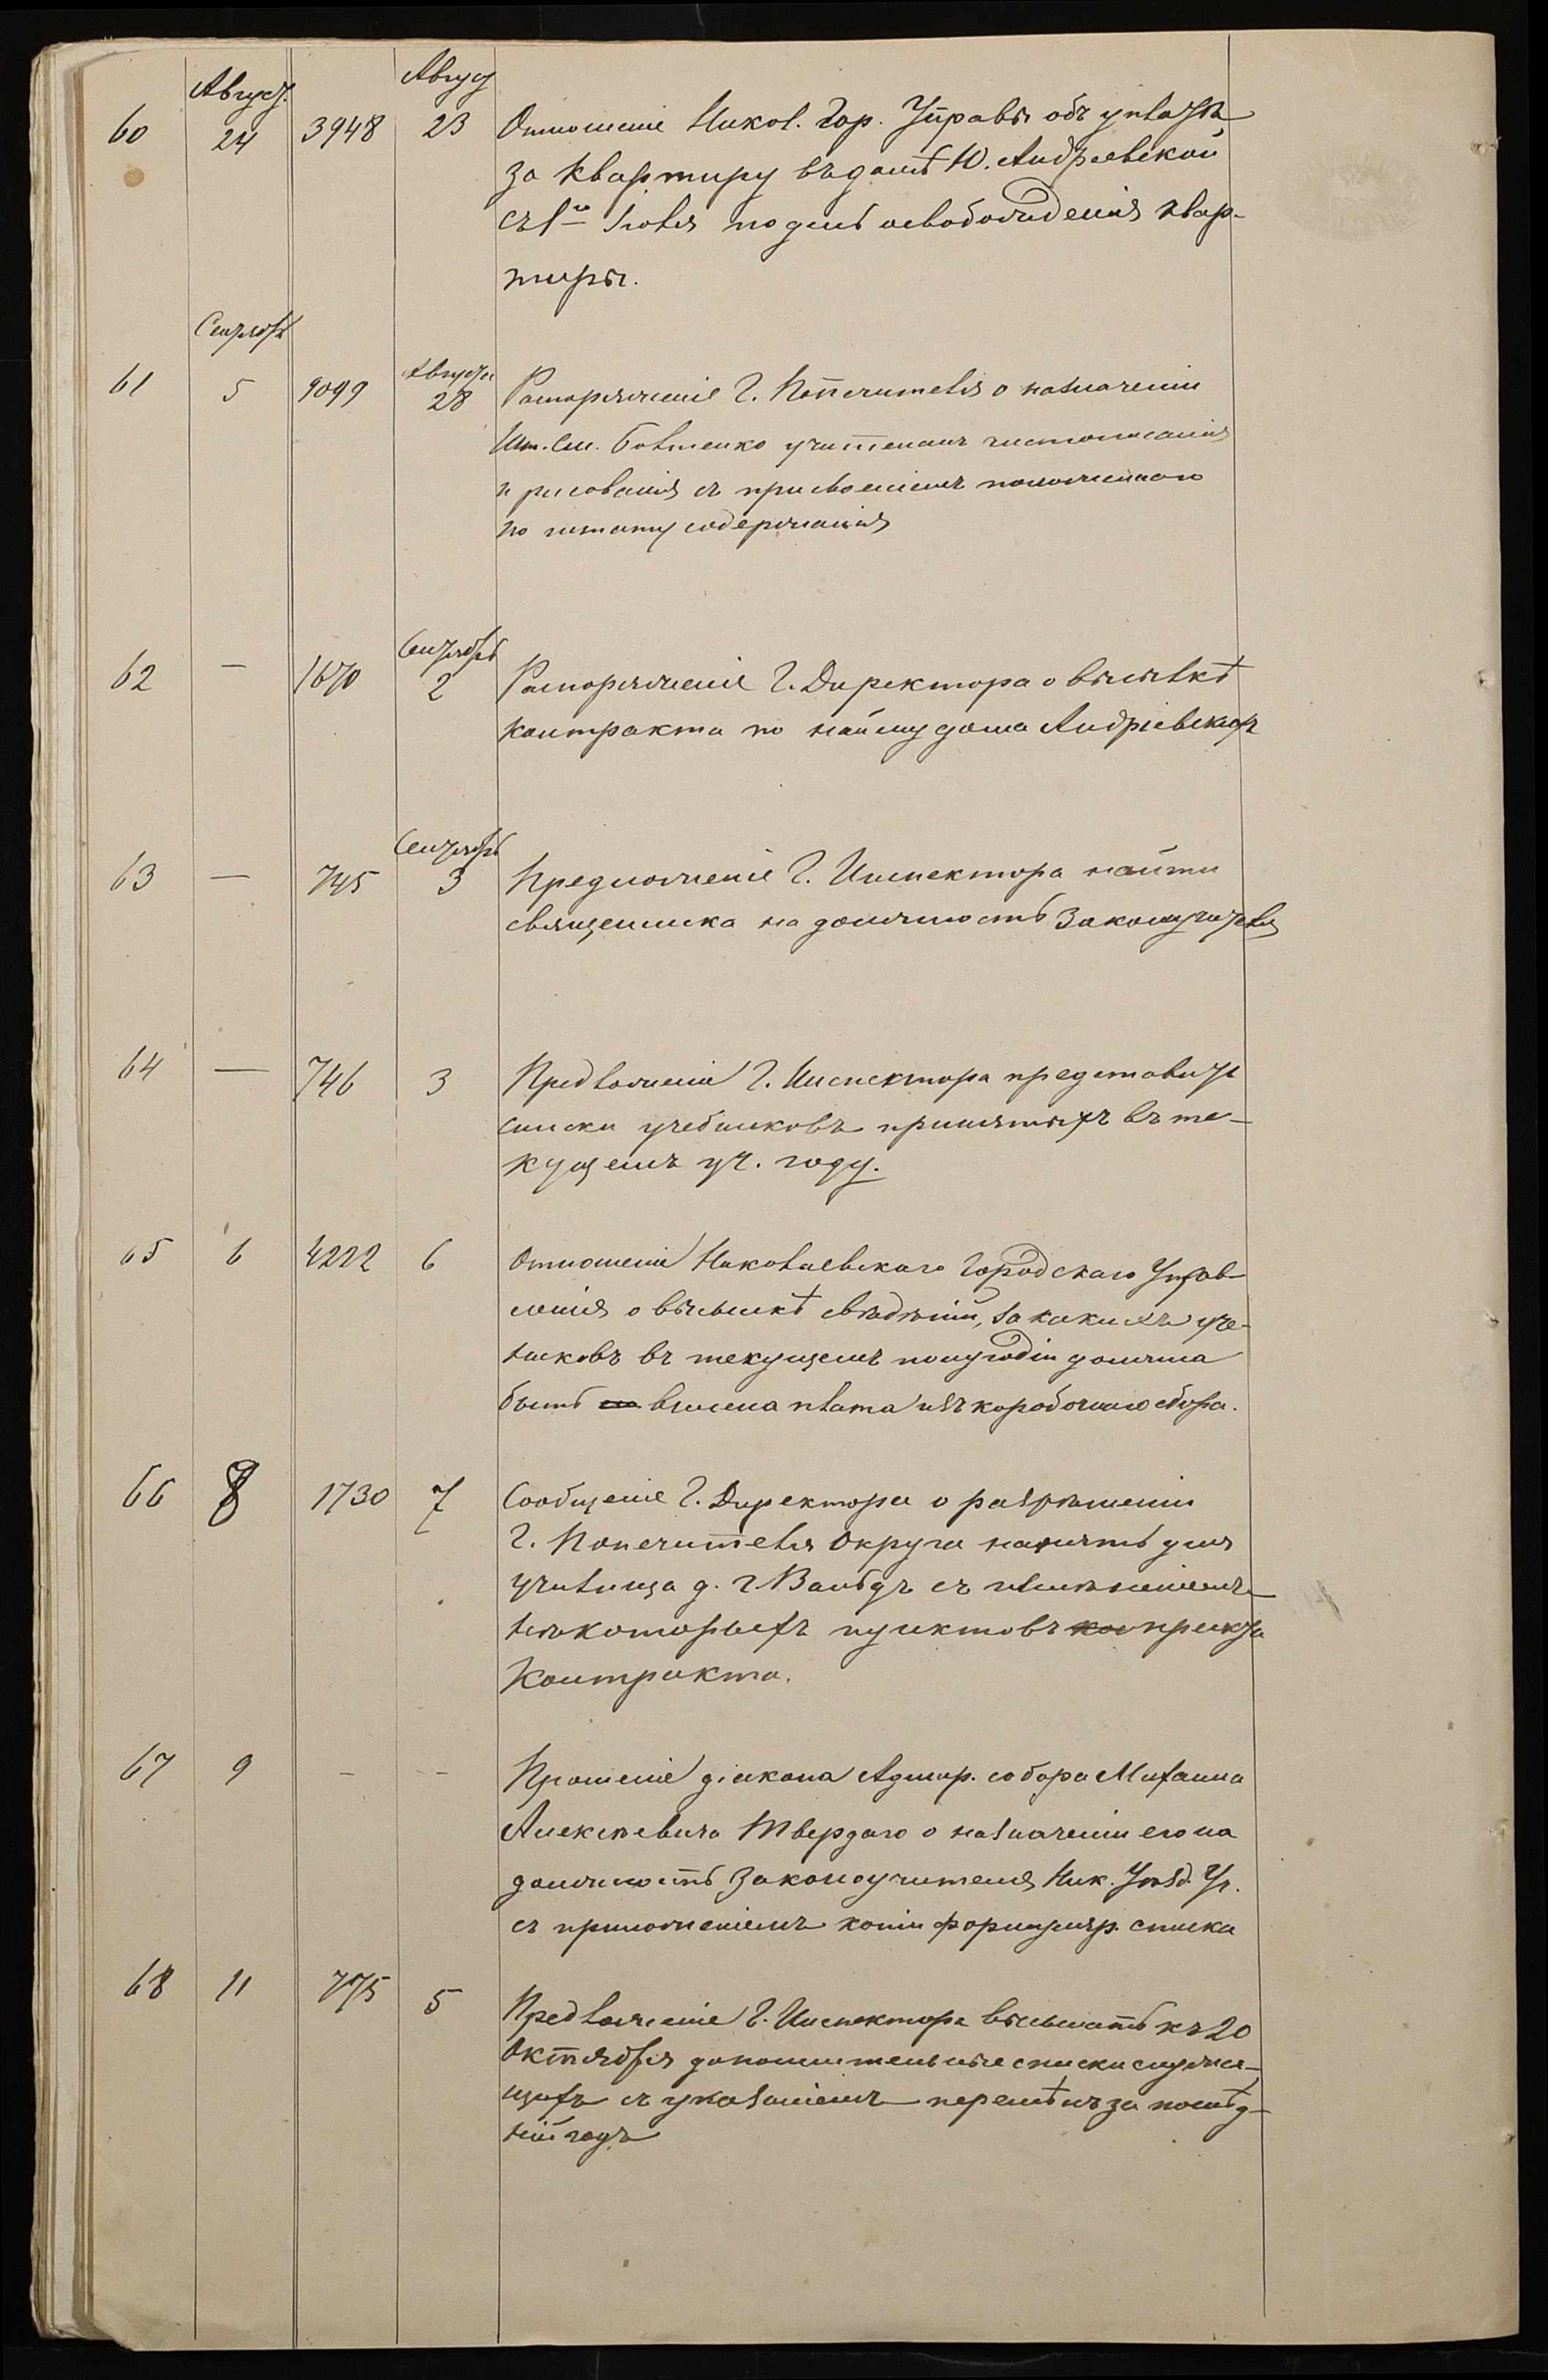 Август. Август
60 24 3948 23 Отношеніе Никол. Гор. Управы объ уплатѣ
за квартиру въ домѣ Ю. Андріевской
съ 1го Іюля по день освобожденія квар-
тиры.
Сентябрь
61 5 9099 Августа 28 Распоряженіе Г. Попечителя о назначеніи
учителемъ чистописанія
и рисованія съ присвоеніемъ положеннаго
по штату содержанія
Сентябрь
62 — 1670 2 Распоряженіе Г. Директора о высылкѣ
контракта по найму дома Андріевской
Сентябрь
63 — 745 3 Предложеніе Г. Инспектора найти
священника на должность Законоучителя
64 — 746 3 Предложеніе Г. Инспектора представить
списки учебниковъ принятыхъ въ те-
кущемъ уч. году.
65 6 4222 6 Отношеніе Николаевскаго Городскаго Управ-
ленія о высылкѣ свѣдѣній, за какихъ уче-
никовъ въ текущемъ полугодіи должна
быть внесена плата изъ коробочнаго сбора.
66 8 1730 7 Сообщеніе Г. Директора о разрѣшеніи
Г. Попечителя Округа нанять для
училища д. г. Вамбдъ съ измѣненіемъ
нѣкоторыхъ пунктовъ проекта
Контракта.
67 9 — — Прошеніе діакона Адмир. собора Михаила
Алексѣевича Твердаго о назначеніи его на
должность Законоучителя Ник. Уѣзд. Уч.
съ приложеніемъ копіи формуляр. списка
68 11 775 5 Предложеніе Г. Инспектора высылать къ 20
Октября дополнительные списки служа-
щихъ съ указаніемъ перемѣнъ за послѣд-
ній годъ